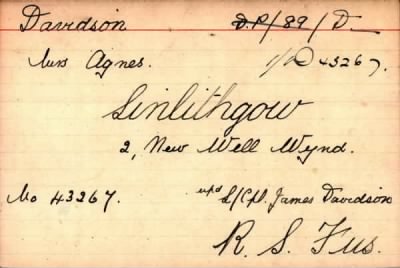 Davidson D.P/89/D
Mrs Agnes. 43267.
Linlithgow
2, New Well Wynd.
Mo 43267. L/Cpl. James Davidson
R. S. Fus.